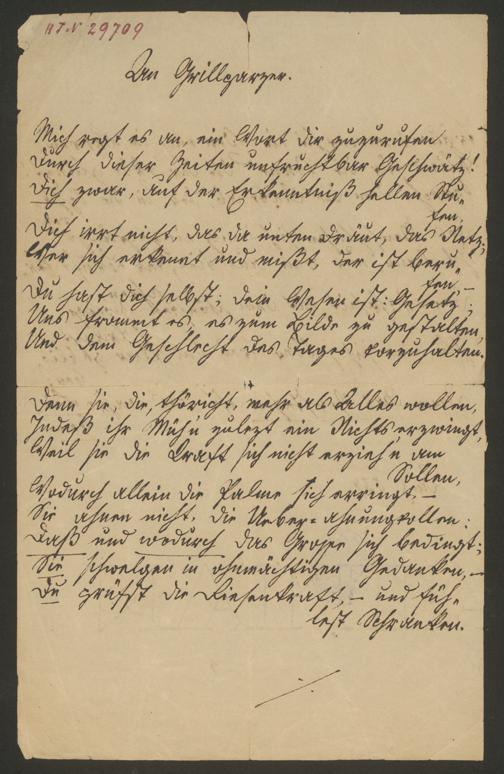 H.I.N. 29709
An Grillparzer.
Mich regt es an, ein Wort dir zuzurufen
Durch dieser Zeiten unfruchtbar Geschwätz!
Dich zwar, auf der Erkenntniß hellen Stu-
fen,
Dich irrt nicht, das da unten dräut, das Netz,
Wer sich erkennt und mißt, der ist beru-
fen, –
Du hast dich selbst; dein Wesen ist: Gesetz;
Uns frommt es, es zum Bilde zu gestalten,
Und dem Geschlecht des Tages vorzuhalten.
Denn sie, die, thöricht, mehr als Alles wollen,
Indeß ihr Müh'n zulezt ein Nichts erzwingt,
Weil sie die Kraft sich nicht erzieh'n am
Sollen,
Wodurch allein die Palme sich erringt, –
Sie ahnen nicht, die Ueber-ahnungvollen:
Daß und wodurch das Grosse sich bedingt;
Sie schwelgen in ohnmächtigen Gedanken, –
Du prüfst die Riesenkraft, – und füh-
lest Schranken.